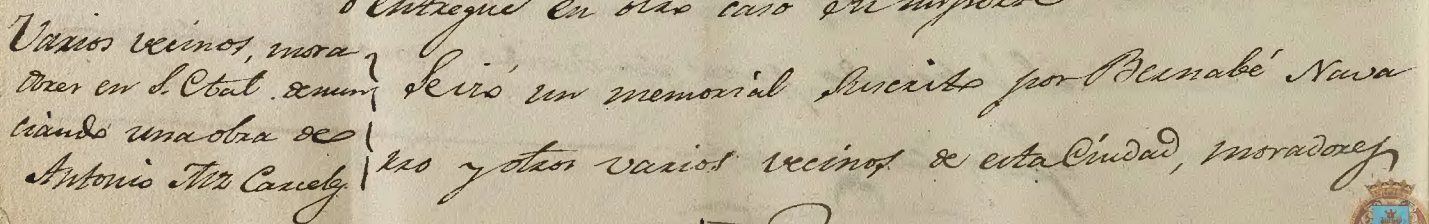 entregue en otro caso su importe
Varios vecinos, mora
dores en S. Ctal. denun
ciando una obra de
Antonio Mrz Carcelez
Leiró un memorial suscrito por Bernabé Nava
rro y otros varios vecinos de esta Ciudad, moradores